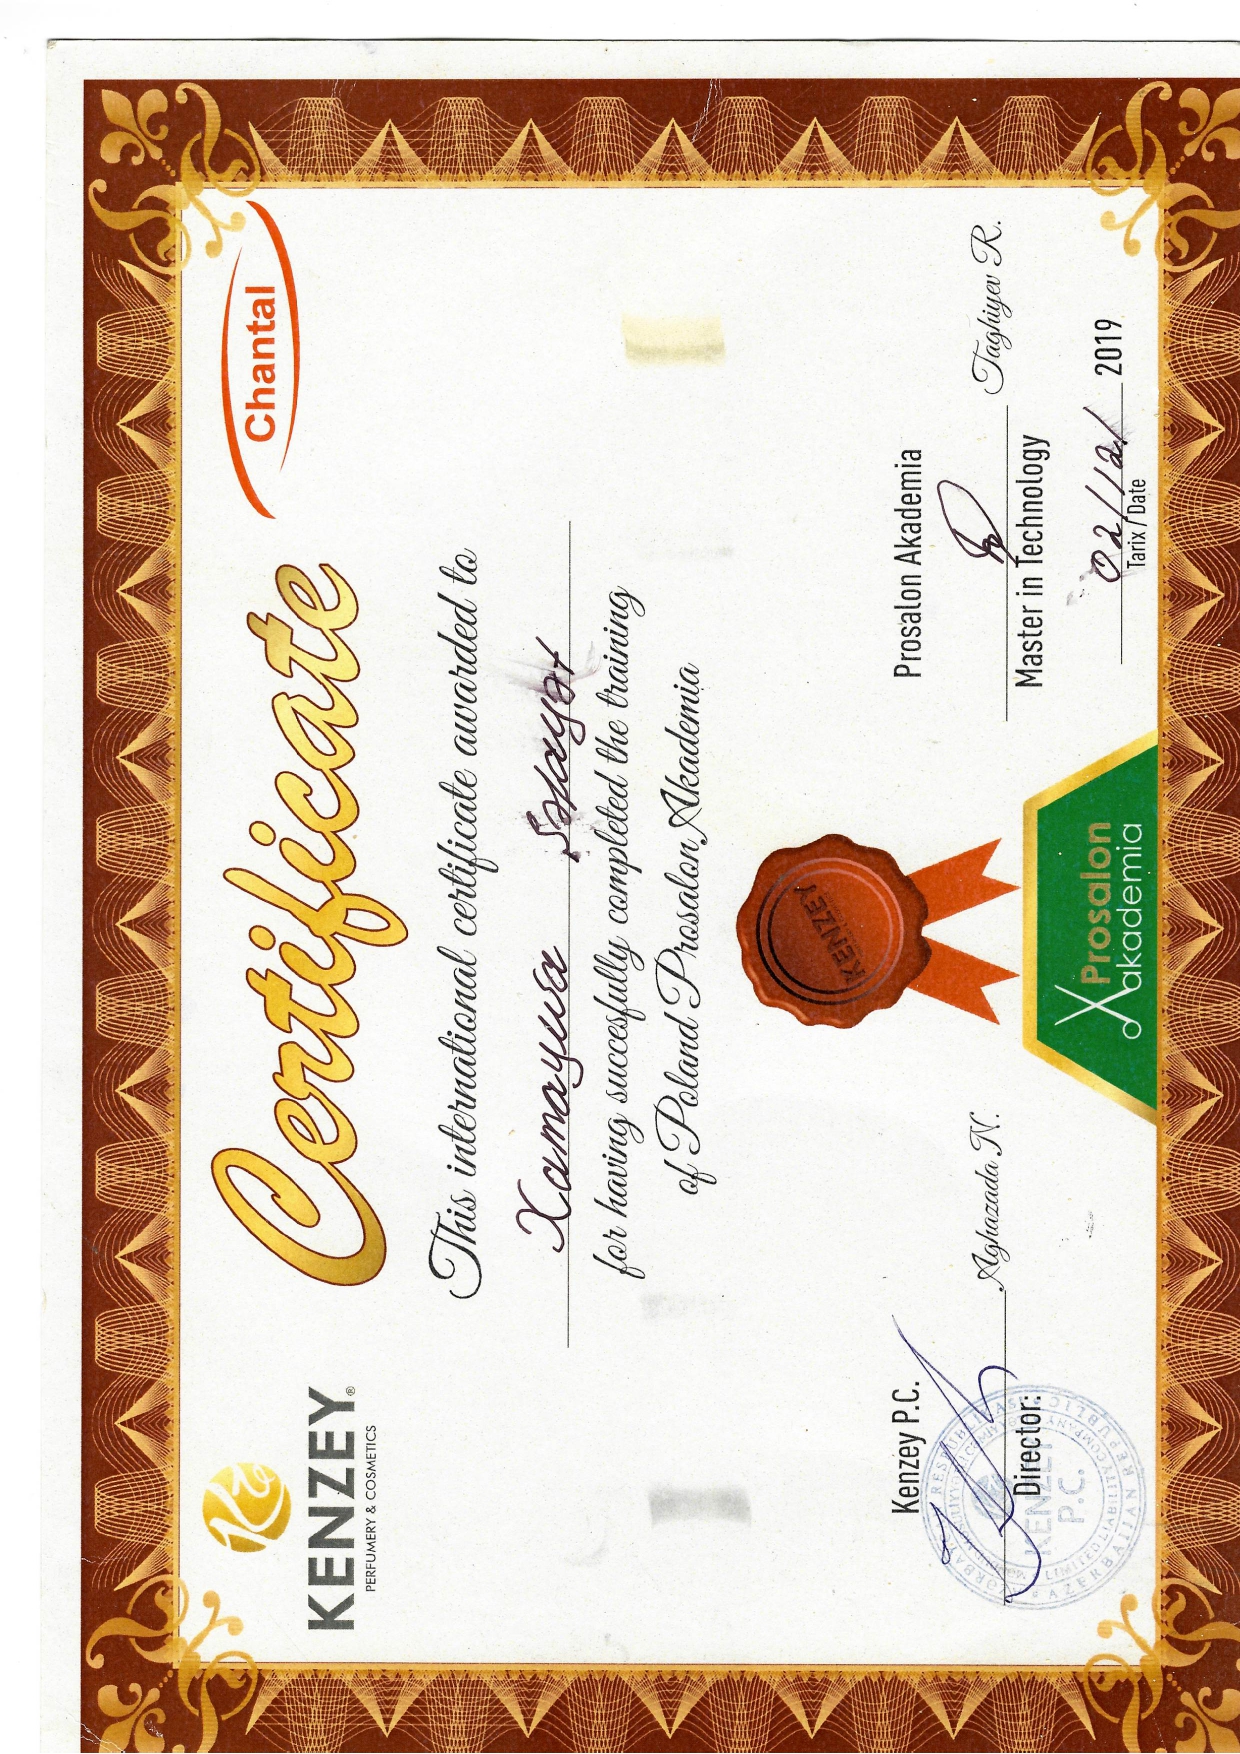 Kz
KENZEY®
PERFUMERY & COSMETICS
Certificate
Chantal
This international certificate awarded to
Xamaywa Səlayət
for having succesfully completed the training
of Poland Prosalon Akademia
KENZEY
Kenzey P.C.
Aghazada N.
Director:
KENZEY
P.C.
LIMITED LIABILITY COMPANY
AZERBAIJAN REPUBLIC
Prosalon Akademia
Taghiyev R.
Master in Technology
02/12/ 2019
Tarix / Date
Prosalon
akademia